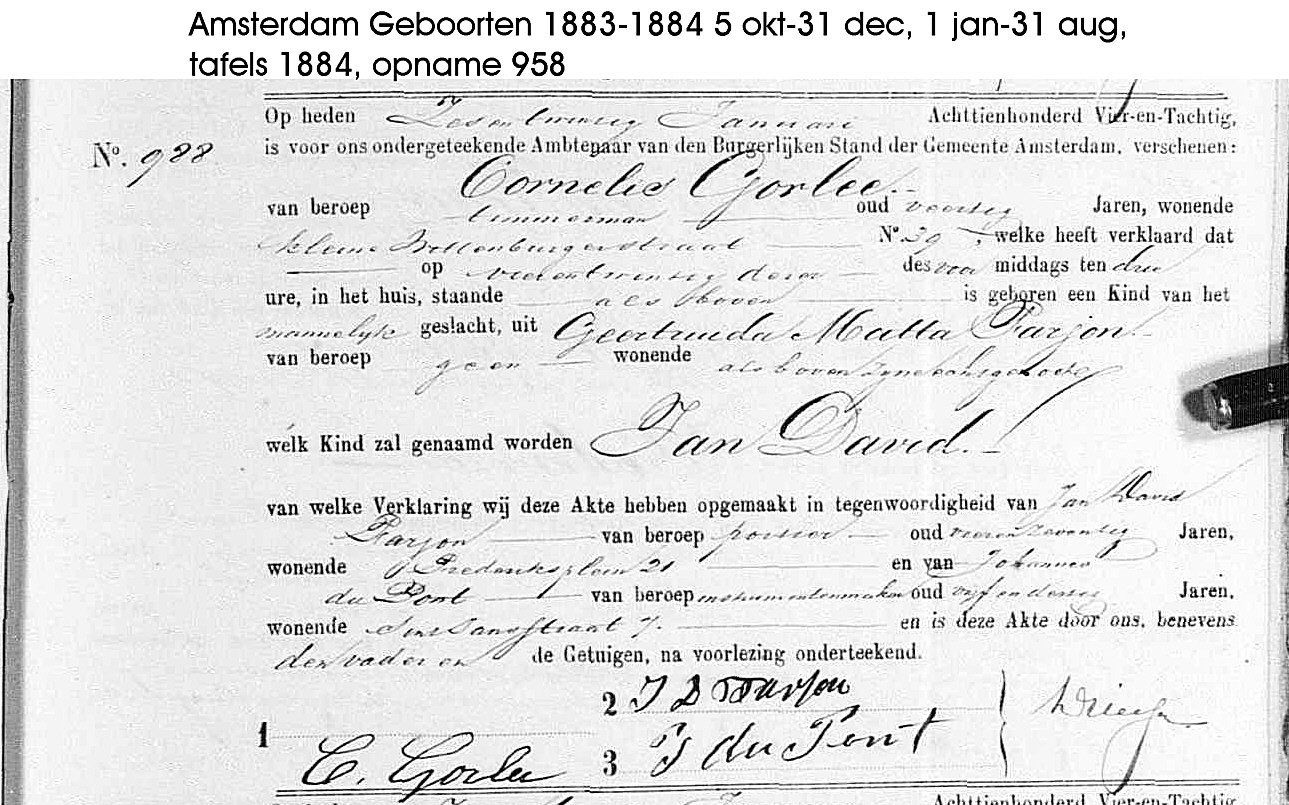 Amsterdam Geboorten 1883-1884 5 okt-31 dec, 1 jan-31 aug,
tafels 1884, opname 958
Op heden Zesentwintig Januari Achttienhonderd Vier-en-Tachtig,
No. 988. is voor ons ondergeteekende Ambtenaar van den Burgerlijken Stand der Gemeente Amsterdam, verschenen:
Cornelis Gorlee.
van beroep timmerman oud veertig Jaren, wonende
kleine Wittenburgerstraat No. 39, welke heeft verklaard dat
op vierentwintig dezer des voor middags ten drie
ure, in het huis, staande als boven is geboren een Kind van het
mannelijk geslacht, uit Geertruida Matta Parjon
van beroep geen wonende als boven zijne echtgenoote
welk Kind zal genaamd worden Jan David.
van welke Verklaring wij deze Akte hebben opgemaakt in tegenwoordigheid van Jan David
Parjon van beroep portier oud vierenzeventig Jaren,
wonende Frederiksplein 21 en van Johannes
du Pont van beroep instrumentenmaker oud vijfendertig Jaren,
wonende straat 7. en is deze Akte door ons, benevens
den vader en de Getuigen, na voorlezing onderteekend.
2 J D Parjon
1 C. Gorlee 3 J du Pont
Achttienhonderd Vier-en-Tachtig